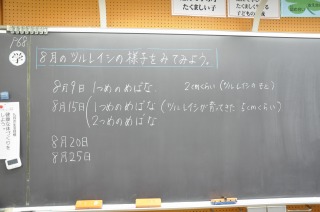 たくましい子
P68
学
8月のツルレイシの様子をみてみよう。
8月9日 1つめのめばな 2cmくらい (ツルレイシのもと)
8月15日 1つめのめばな (ツルレイシが育ってきた 5cmくらい)
2つめのめばな
8月20日
8月25日